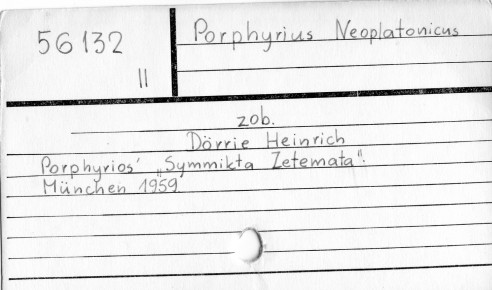 56132
II
Porphyrius Neoplatonicus
zob.
Dörrie Heinrich
Porphyrios' „Symmikta Zetemata".
München 1959